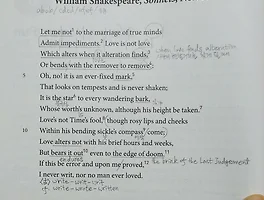 William Shakespeare,
Let me not¹ to the marriage of true minds
Admit impediments.² Love is not love
Which alters when it alteration finds,³
Or bends with the remover to remove⁴:
5 Oh, no! it is an ever-fixed mark,⁵
That looks on tempests and is never shaken;
It is the star⁶ to every wandering bark,
Whose worth's unknown, although his height be taken.⁷
Love's not Time's fool,⁸ though rosy lips and cheeks
10 Within his bending sickle's compass⁹ come;
Love alters not with his brief hours and weeks,
But bears it out¹⁰ even to the edge of doom.¹¹
endures
If this be error and upon me proved,¹² the brink of the Last Judgement
I never writ, nor no man ever loved.
write-writ-writ
write-wrote-written